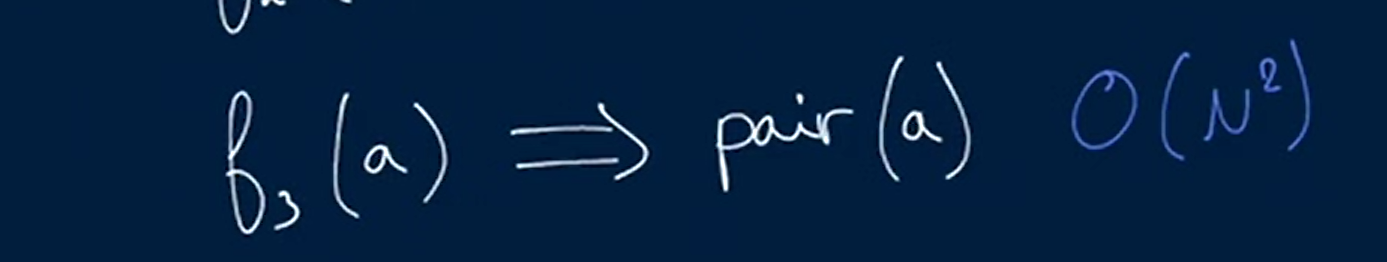 f₃(a) ⟹ pair(a) O(N²)